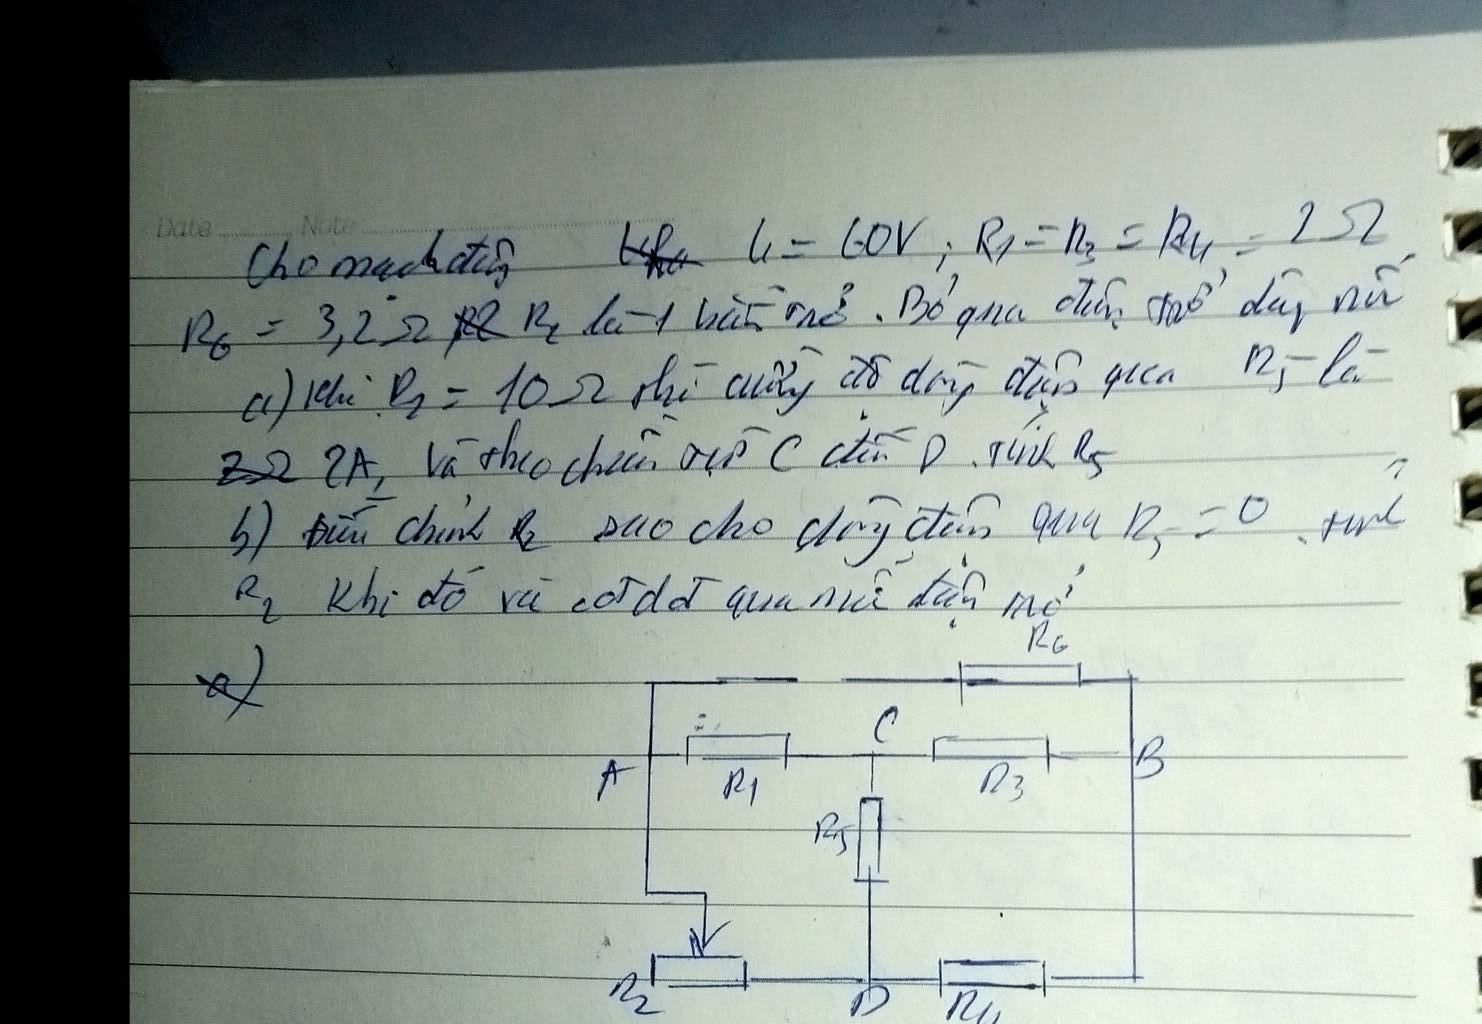 Date Note
Cho mạch điện U = 60V; R1 = R3 = R4 = 2Ω
R6 = 3,2Ω R2 là 1 biến trở. Bỏ qua điện trở dây nối
a) Khi R2 = 10Ω thì cường độ dòng điện qua R5 là
2A, và theo chiều từ C đến D. Tính R5
b) Điều chỉnh R2 sao cho dòng điện qua R5 = 0. Tính
R2 khi đó và cđdđ qua mỗi điện trở
R6
a)
C
A R1 R3 B
R5
R2 D R4